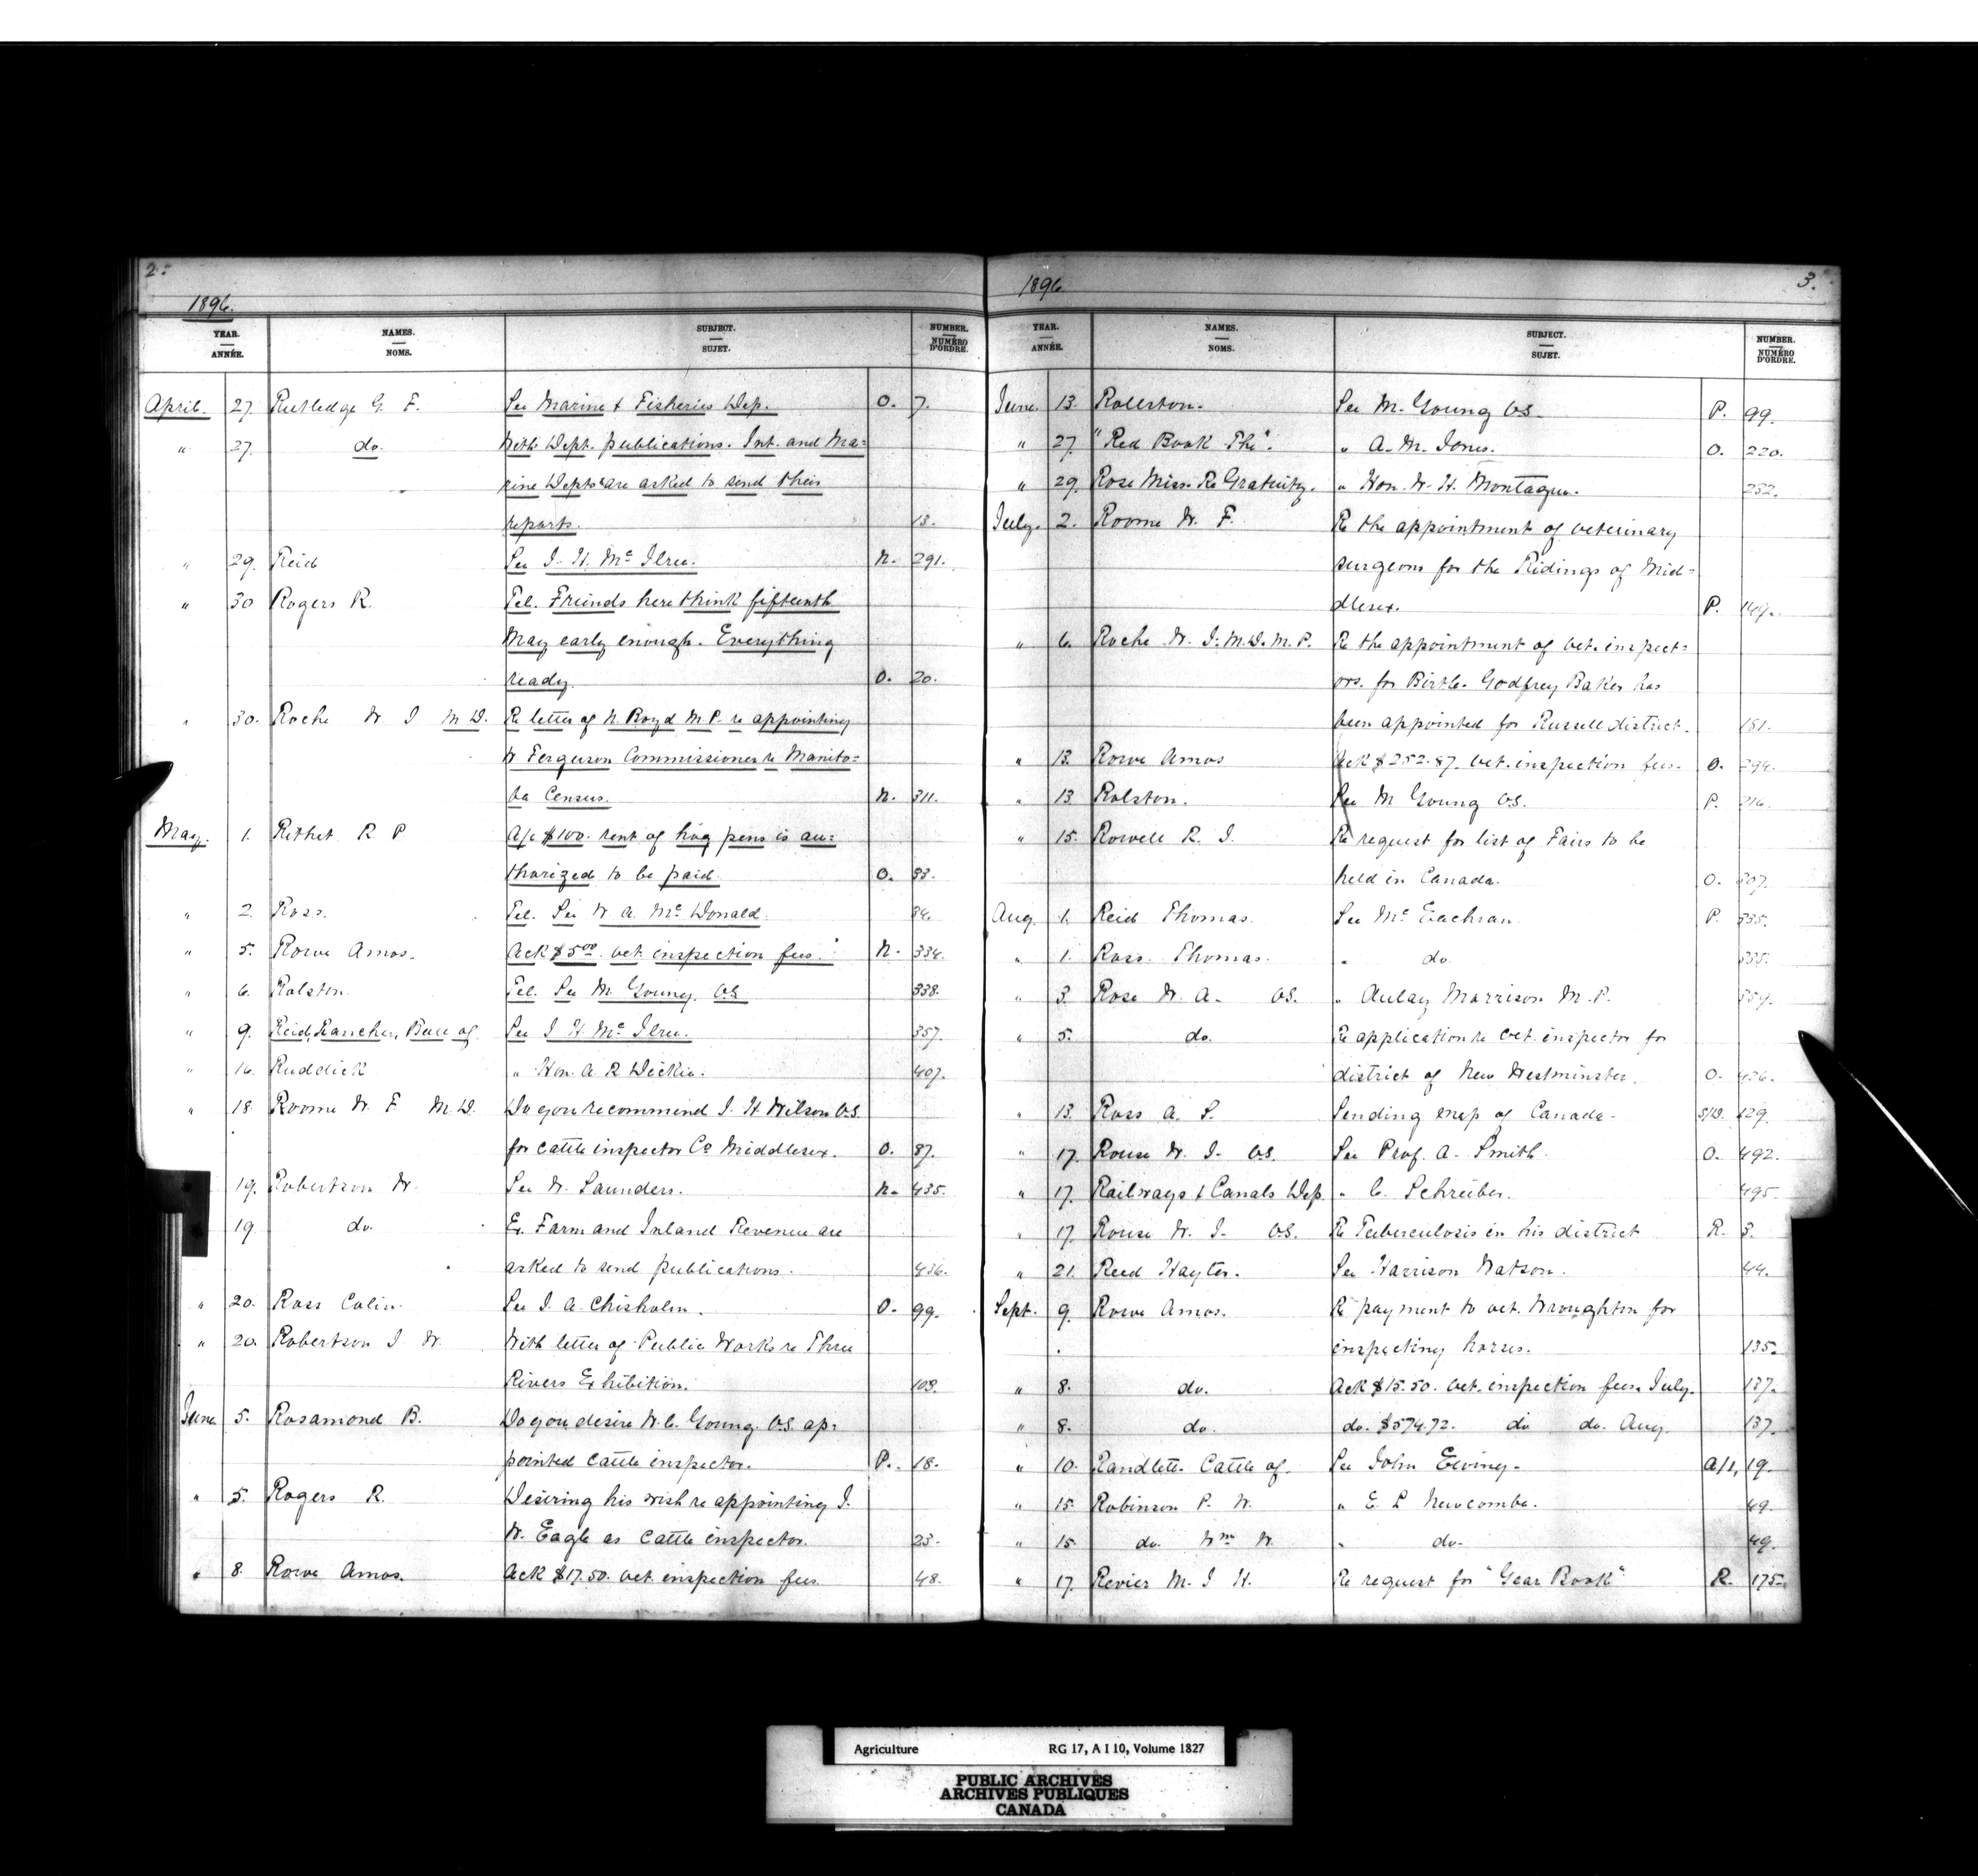 2.
1896.
YEAR. ANNÉE. NAMES. NOMS. SUBJECT. SUJET. NUMBER. NUMÉRO D'ORDRE.
April. 27. Rutledge G. F. See Marine & Fisheries Dep. O. 7.
" 27. do. With Dept. publications. Int. and Ma=
rine Depts are asked to send their
reports. 13.
" 29. Reid See J. H. Mc Ilree. N. 291.
" 30 Rogers R. Tel. Friends here think fifteenth
May early enough. Everything
ready. O. 20.
" 30. Roche W J M.D. Re letter of N. Boyd M.P. re appointing
W Ferguson Commissioner re Manito=
ba Census. N. 311.
May. 1. Rithet R P A/c $100. rent of hog pens is au=
thorized to be paid. O. 33.
" 2. Ross. Tel. See W. A. Mc Donald. 34.
" 5. Rowe Amos. Ack $5.00. vet inspection fees. N. 334.
" 6. Rolston. Tel. See M. Young. V.S. 338.
" 9. Reid, Rancher, Bull of See J H. Mc Ilree. 357.
" 16. Ruddick " Hon. A. R. Dickie. 407.
" 18. Roome W. F. M.D. Do you recommend J. H. Wilson V.S.
for cattle inspector Co Middlesex. O. 87.
19. Robertson W. See W. Saunders. N. 435.
19. do. Ex. Farm and Inland Revenue are
asked to send publications. 436.
" 20. Ross Colin. See J. A. Chisholm. O. 99.
" 20. Robertson J W. With letter of Public Works re Three
Rivers Exhibition. 103.
June 5. Rosamond B. Do you desire W. C. Young. V.S. ap=
pointed cattle inspector. P. 18.
" 5. Rogers R. Desiring his wish re appointing J.
W. Eagle as cattle inspector. 23.
" 8. Rowe Amos. Ack $17.50. vet inspection fees. 48.
1896
3.
YEAR. ANNÉE. NAMES. NOMS. SUBJECT. SUJET. NUMBER. NUMÉRO D'ORDRE.
June. 13. Rollston. See M. Young V.S. P. 99.
" 27. "Red Book The". " A. M. Jones. O. 220.
" 29. Rose Miss. Re Gratuity. " Hon. W. H. Montague. 232.
July. 2. Roome W. F. Re the appointment of veterinary
surgeons for the Ridings of Mid=
dlesex. P. 149.
" 6. Roche W. J. M.D. M.P. Re the appointment of vet. inspect=
ors. for Birtle. Godfrey Baker has
been appointed for Russell district. 181.
" 13. Rowe Amos Ack $252.87. vet. inspection fees. O. 294.
" 13. Rolston. See M Young V.S. P. 216.
" 15. Rowell R. J. Re request for list of Fairs to be
held in Canada. O. 307.
Aug. 1. Reid Thomas. See Mc Eachran. P. 335.
" 1. Ross. Thomas. " do. 335.
" 3. Rose W. A. V.S. " Aulay Morrison M.P. 359.
" 5. do. Re application re vet. inspector for
district of New Westminster. O. 436.
" 13. Ross A. S. Sending map of Canada. S/W. 129.
" 17. Rouse W. J. V.S. See Prof. A. Smith. O. 492.
" 17. Railways & Canals Dep. " C. Schreiber. 495.
" 17. Rouse W. J. V.S. Re Tuberculosis in his district R. 3.
" 21. Reed Hayter. See Harrison Watson. 44.
Sept. 9. Rowe Amos. Re payment to vet. Wroughton for
inspecting horses. 135.
" 8. do. Ack $15.50. vet. inspection fees. July. 137.
" 8. do. do. $574.72. do do. Aug. 137.
" 10. Randlett. Cattle of See John Ewing. 19.
" 15. Robinson P. W. " E. L Newcombe. 49.
" 15. do. Wm W. " do. 49.
" 17. Revier M. J H. Re request for "Year Book" R. 175.
Agriculture RG 17, A I 10, Volume 1827
PUBLIC ARCHIVES
ARCHIVES PUBLIQUES
CANADA